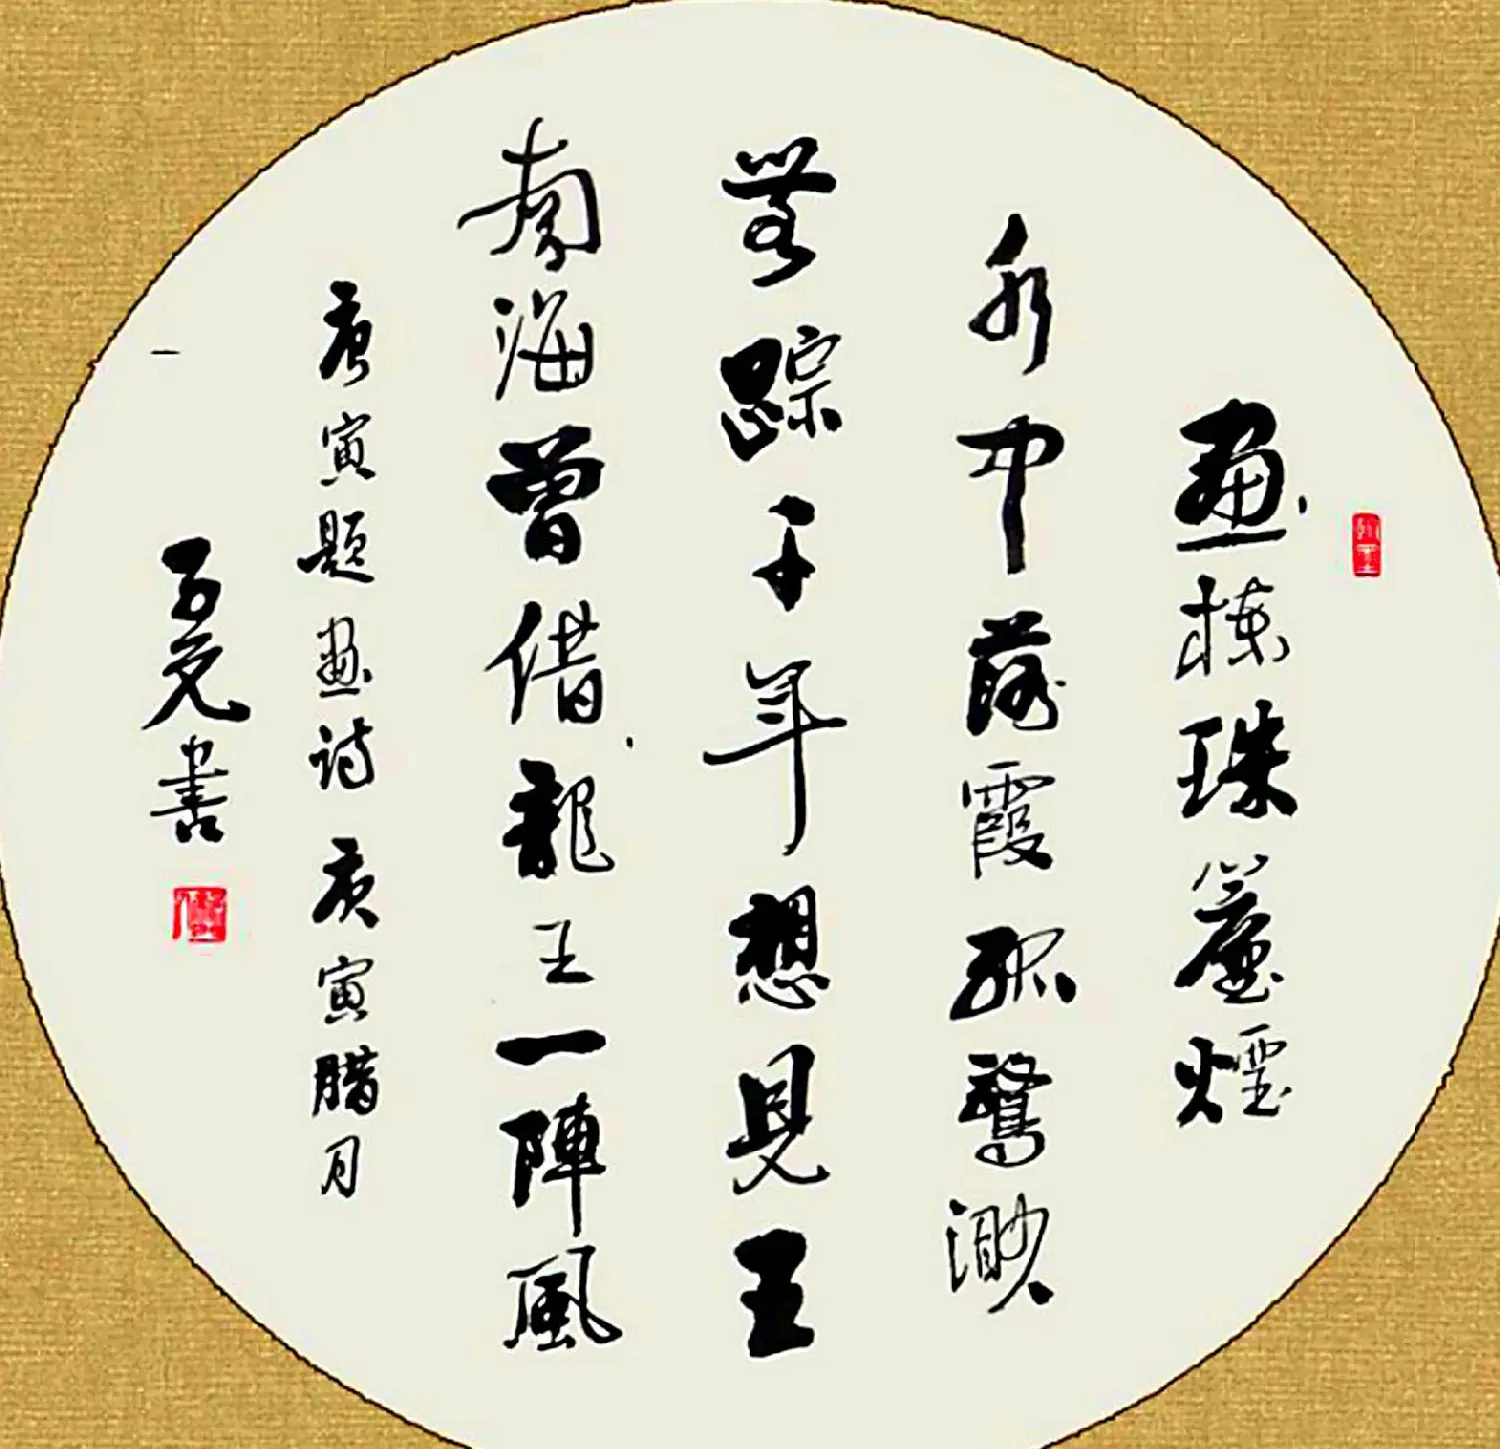 畫棟珠簾煙
水中落霞孤鶩渺
無踪千年想見王
南海曾借龍王一陣風
唐寅題畫詩 庚寅腊月
書